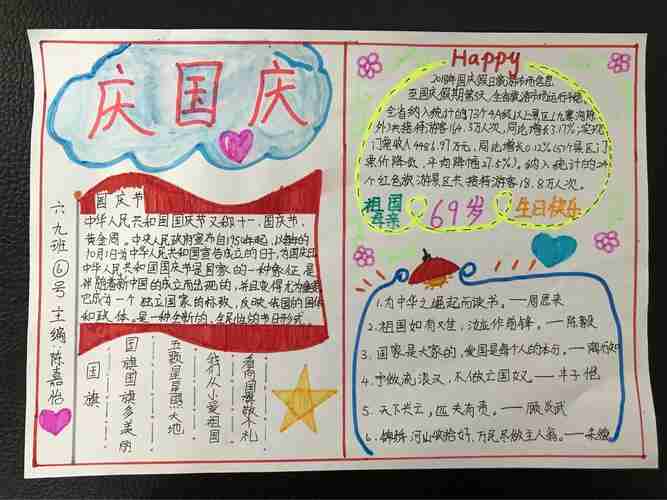 庆国庆
六九班⑥号 主编:陈嘉怡
国庆节
中华人民共和国国庆节又称十一、国庆节、
黄金周。中央人民政府宣布自1950年起,以每年的
10月1日为中华人民共和国宣告成立的日子,为国庆日
中华人民共和国国庆节是国家的一种象征,是
伴随着新中国的成立而出现的,并且变得尤为重要
它成为一个独立国家的标致,反映我国的国体
和政体。是一种全新的、全民性的节日形式。
国旗
国旗国旗多美丽
五颗星星照大地
我们从小爱祖国
看向国旗敬个礼
Happy
2018年国庆假日旅游市场信息
至国庆假期第5天,全省旅游市场运行平稳。
全省纳入统计的73个4A级以上景区(九寨沟除
外)共接待游客164.5万人次,同比增长3.17%;实现
门票收入4486.97万元,同比增长0.12%(57个景区门
票价降数,平均降幅27.5%)。纳入统计的
个红色旅游景区共接待游客18.8万人次。
祖国母亲 69岁 生日快乐
1.为中华之崛起而读书。——周恩来
2.祖国如有难,汝应作前锋。——陈毅
3.国家是大家的,爱国是每个人的本份。——陶行知
4.宁做流浪汉,不做亡国奴。——丰子恺
5.天下兴亡,匹夫有责。——顾炎武
6.锦绣河山收拾好,万民尽做主人翁。——朱德